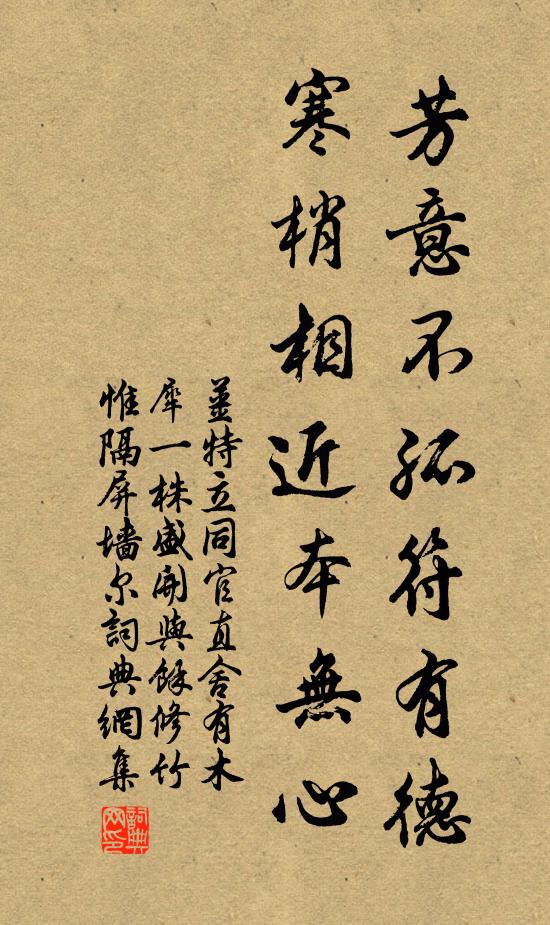 芳意不孤符有德
寒梢相近本無心
姜特立同官直舍有木
犀一株盛開與餘修竹
惟隔屏墻尔詞典網集
詞典网印